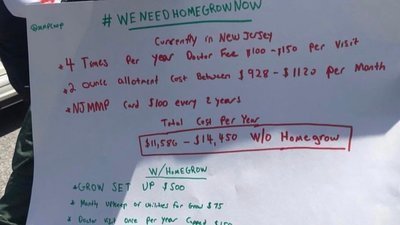 #WENEEDHOMEGROWNOW
Currently in NEW JERSEY
* 4 Times Per year Doctor Fee $100-$150 per Visit
* 2 ounce allotment cost Between $928-$1120 per Month
* NJMMP Card $100 every 2 years
Total Cost Per Year
$11,586 - $14,450 W/O Homegrow
W/ HOMEGROW
* GROW SET UP $500
* Montly upkeep or utilities for Grow $75
* Doctor Visit once per year Capped $150